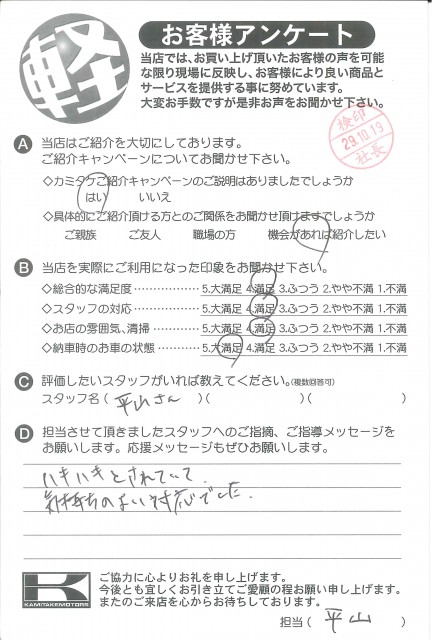 軽
お客様アンケート
当店では、お買い上げ頂いたお客様の声を可能
な限り現場に反映し、お客様により良い商品と
サービスを提供する事に努めています。
大変お手数ですが是非お声をお聞かせ下さい。
検印
29.10.19
社長
A 当店はご紹介を大切にしております。
ご紹介キャンペーンについてお聞かせ下さい。
◇カミタケご紹介キャンペーンのご説明はありましたでしょうか
はい いいえ
◇具体的にご紹介頂ける方とのご関係をお聞かせ頂けますでしょうか
ご親族 ご友人 職場の方 機会があれば紹介したい
B 当店を実際にご利用になった印象をお聞かせ下さい。
◇総合的な満足度 ……………… 5.大満足 4.満足 3.ふつう 2.やや不満 1.不満
◇スタッフの対応 ……………… 5.大満足 4.満足 3.ふつう 2.やや不満 1.不満
◇お店の雰囲気、清掃 ………… 5.大満足 4.満足 3.ふつう 2.やや不満 1.不満
◇納車時のお車の状態 ………… 5.大満足 4.満足 3.ふつう 2.やや不満 1.不満
C 評価したいスタッフがいれば教えてください。(複数回答可)
スタッフ名( 平山さん )( )( )
D 担当させて頂きましたスタッフへのご指摘、ご指導メッセージを
お願いします。応援メッセージもぜひお願いします。
ハキハキとされていて、
気持ちのよい対応でした。
K
KAMITAKEMOTORS
ご協力に心よりお礼を申し上げます。
今後とも宜しくお引き立てご愛顧の程お願い申し上げます。
またのご来店を心からお待ちしております。
担当( 平山 )